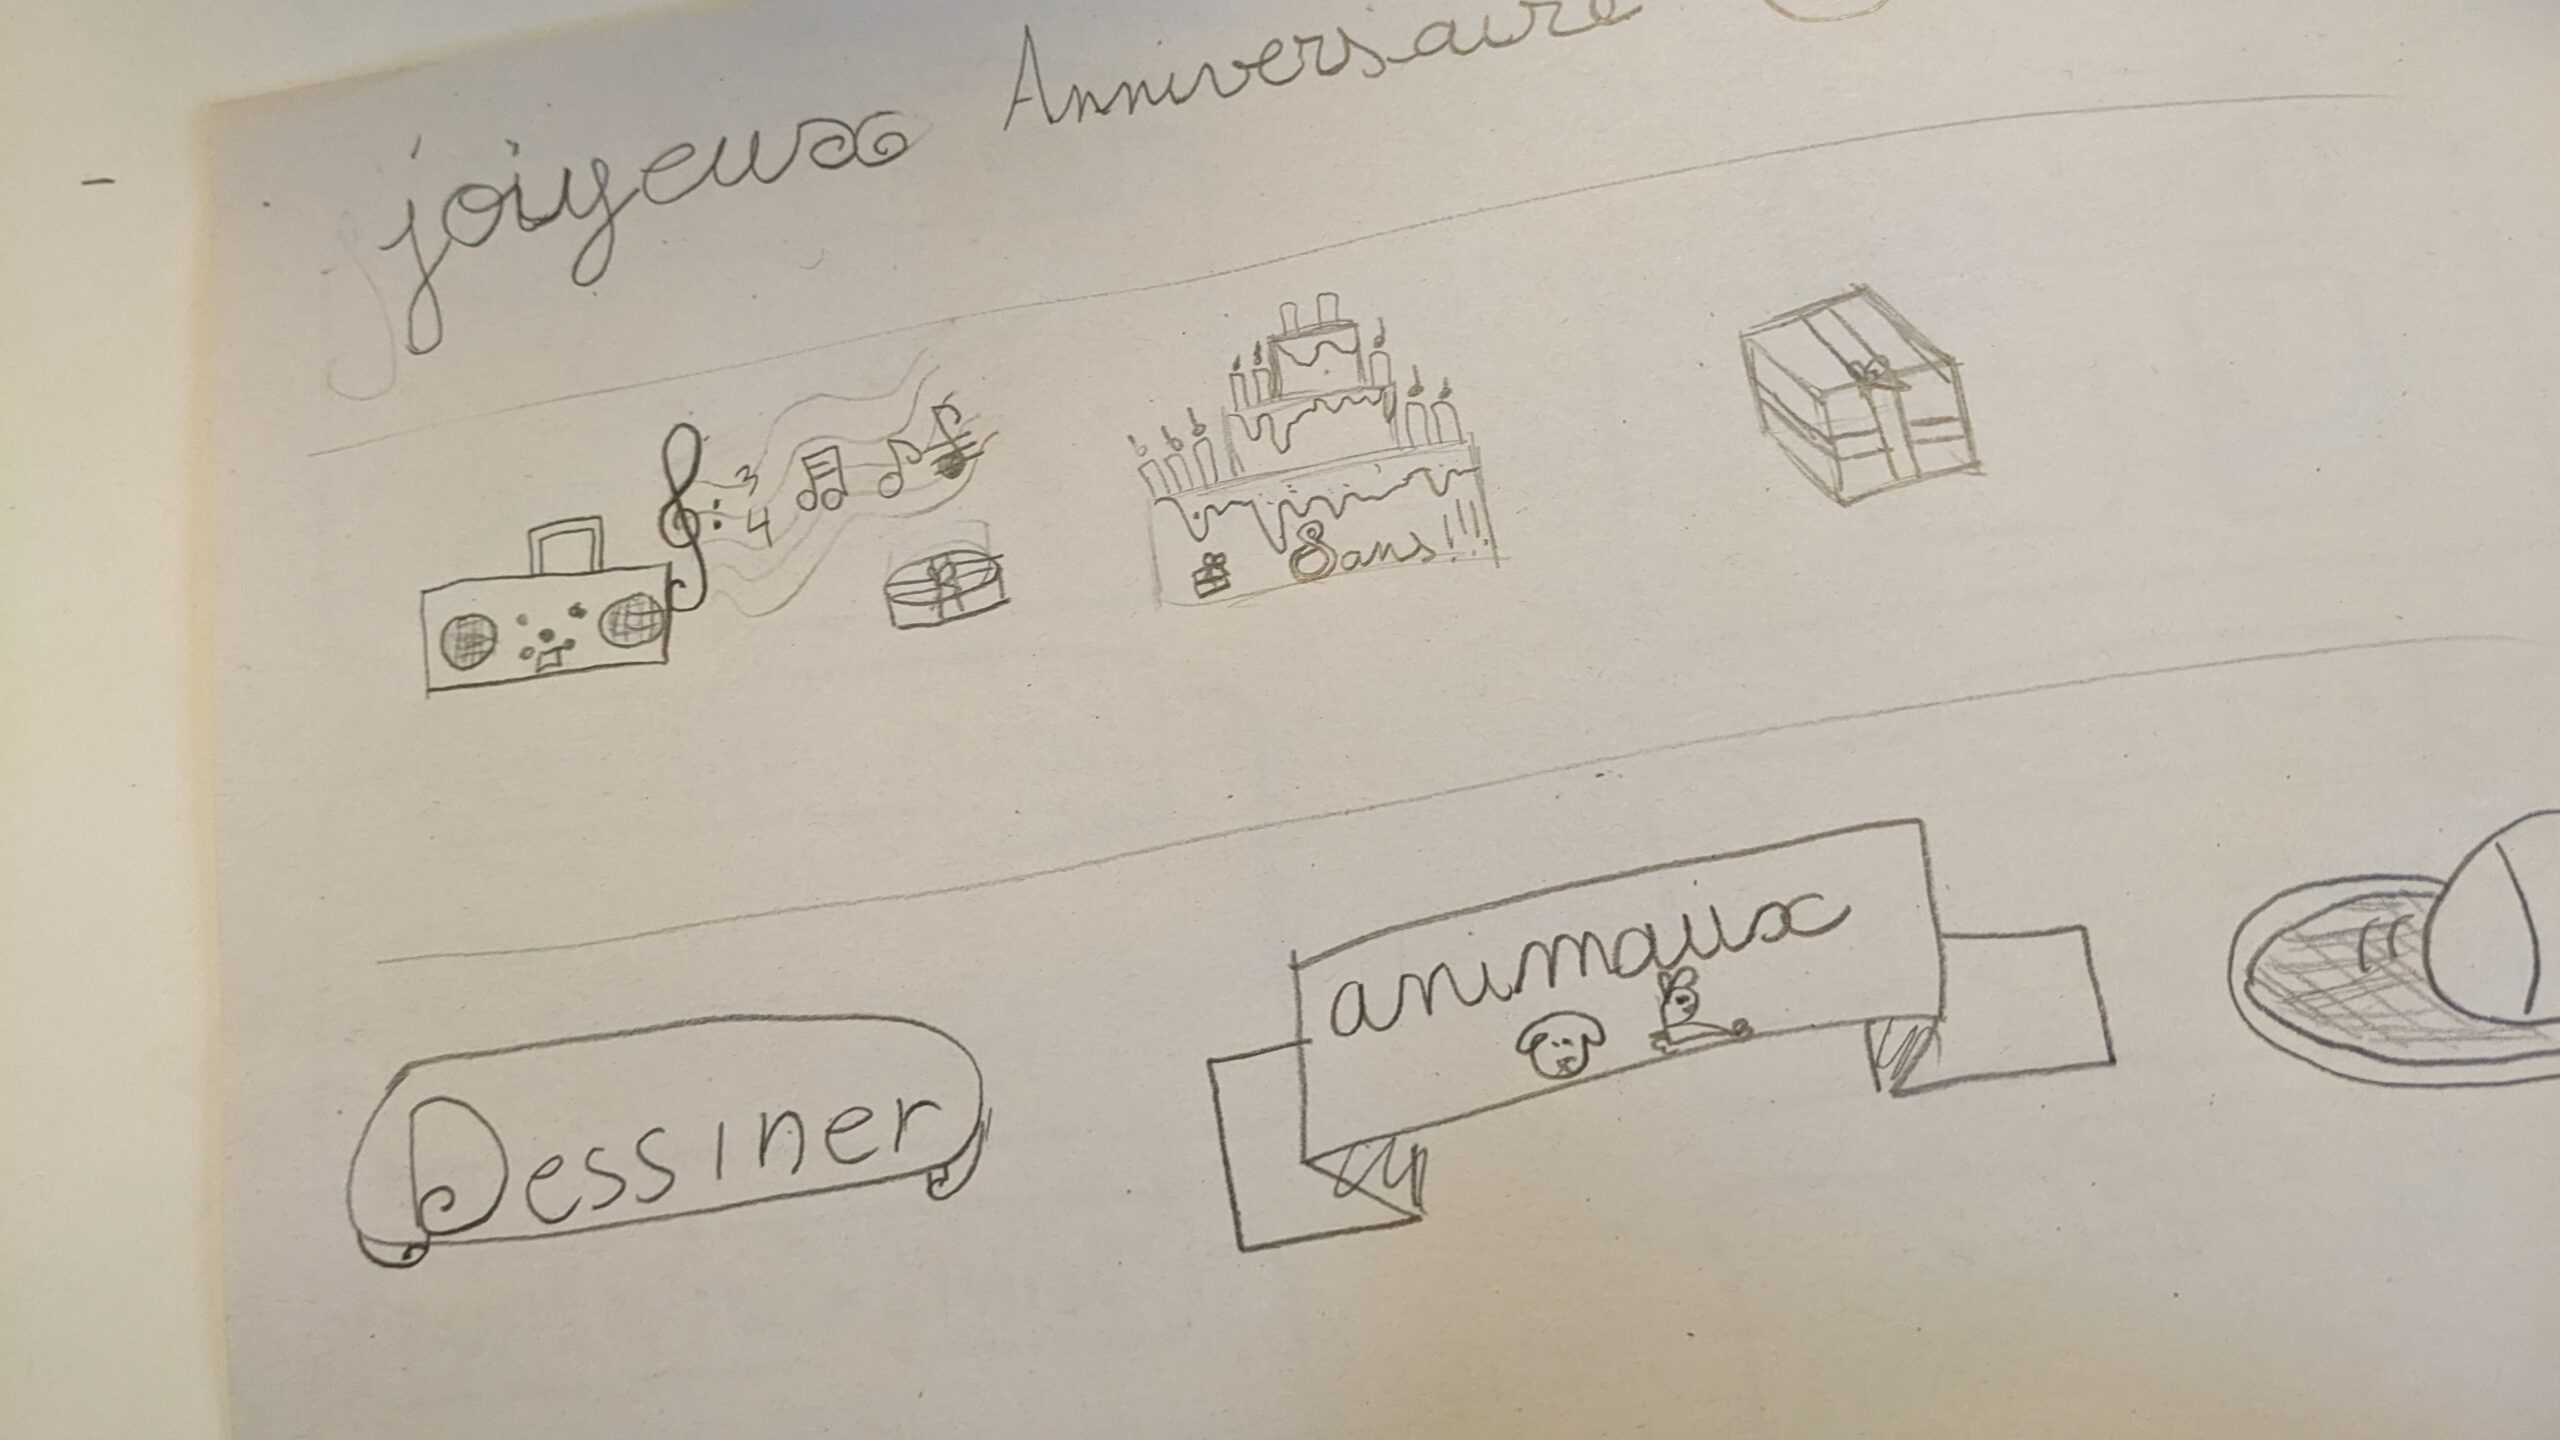 joiyeux Anniversaire
3
4
8ans!!!
animaux
Dessiner